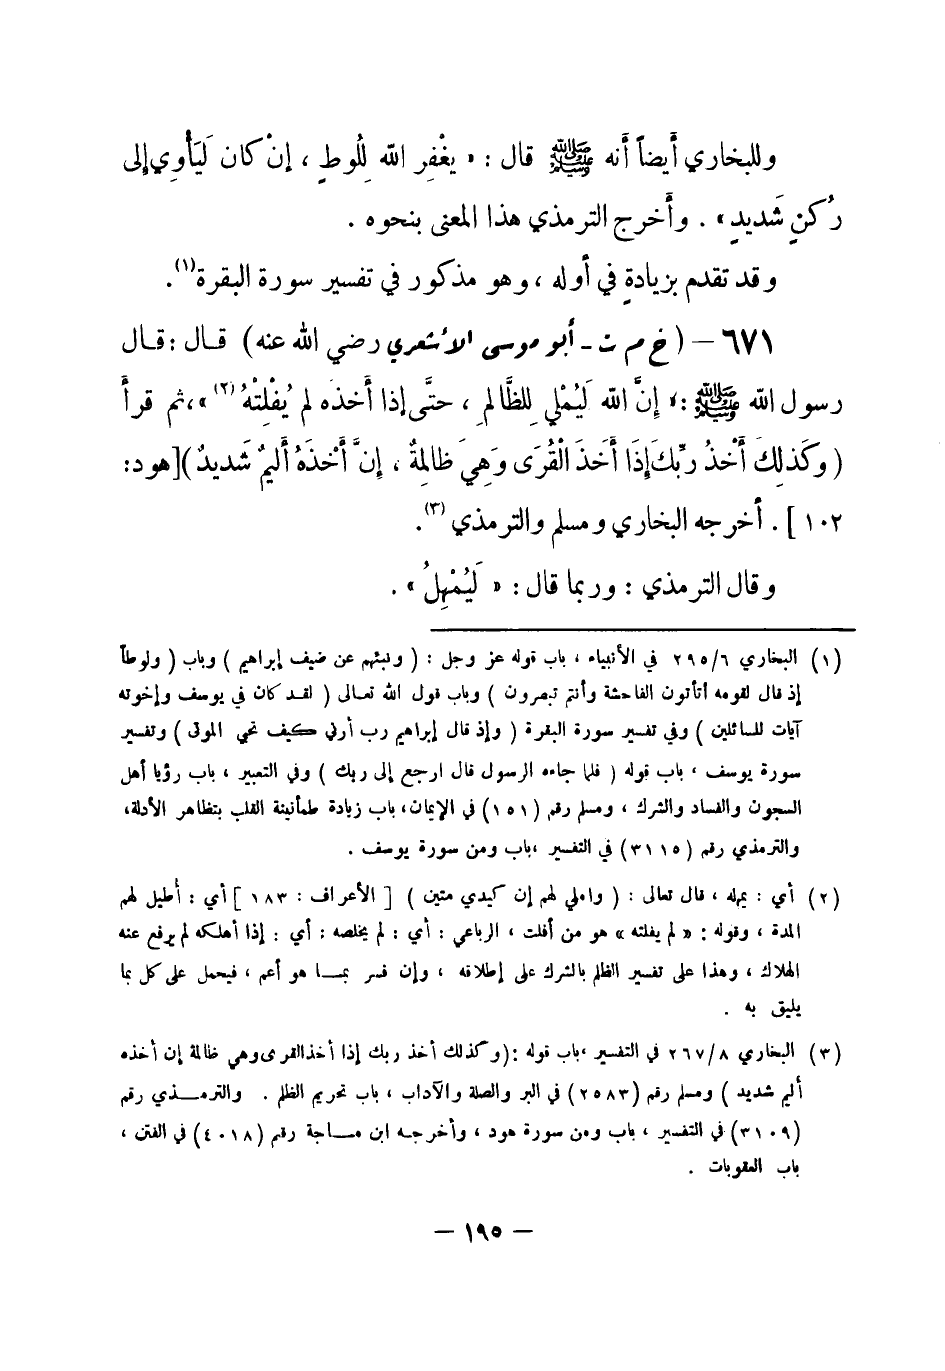 وللبخاري أيضاً أنه ﷺ قال : « يغْفِر الله لِلُوطٍ ، إنْ كان لَيَأْوِي إلى
رُكنٍ شَديدٍ » . وأَخرج الترمذي هذا المعنى بنحوه .
وقد تقدم بزيادةٍ في أوله ، وهو مذكور في تفسير سورة البقرة (١) .
٦٧١ – ( خ م ت ـ أبو موسى الأشعري رضي الله عنه ) قال : قال
رسول الله ﷺ : « إنَّ الله لَيُمْلي لِلظَّالمِ ، حتَّى إذا أَخذَه لم يُفْلِتْهُ (٢) » ، ثم قرأَ
( وكَذلِكَ أَخْذُ ربِّكَ إذَا أَخَذَ الْقُرَى وَهِيَ ظَالِمَةٌ ، إنَّ أَخْذَهُ أَليمٌ شَديدٌ ) [ هود :
١٠٢ ] . أخرجه البخاري ومسلم والترمذي (٣) .
وقال الترمذي : وربما قال : « لَيُمْهِلُ » .
(١) البخاري ٢٩٥/٦ في الأنبياء ، باب قوله عز وجل : ( ونبئهم عن ضيف إبراهيم ) وباب ( ولوطاً
إذ قال لقومه أتأتون الفاحشة وأنتم تبصرون ) وباب قول الله تعالى ( لقد كان في يوسف وإخوته
آيات للسائلين ) وفي تفسير سورة البقرة ( وإذ قال إبراهيم رب أرني كيف تحي الموتى ) وتفسير
سورة يوسف ، باب قوله ( فلما جاءه الرسول قال ارجع إلى ربك ) وفي التعبير ، باب رؤيا أهل
السجون والفساد والشرك ، ومسلم رقم (١٥١) في الإيمان ، باب زيادة طمأنينة القلب بتظاهر الأدلة ،
والترمذي رقم (٣١١٥) في التفسير ، باب ومن سورة يوسف .
(٢) أي : يمهله ، قال تعالى : ( واملي لهم إن كيدي متين ) [ الأعراف : ١٨٣ ] أي : أُطيل لهم
المدة ، وقوله : « لم يفلته » هو من أفلت ، الرباعي : أي : لم يخلصه : أي : إذا أهلكه لم يرفع عنه
الهلاك ، وهذا على تفسير الظلم بالشرك على إطلاقه ، وإن فسر بمــا هو أعم ، فيحمل على كل بما
يليق به .
(٣) البخاري ٢٦٧/٨ في التفسير ، باب قوله : ( وكذلك أخذ ربك إذا أخذ القرى وهي ظالمة إن أخذه
أليم شديد ) ومسلم رقم (٢٥٨٣) في البر والصلة والآداب ، باب تحريم الظلم . والترمــذي رقم
(٣١٠٩) في التفسير ، باب ومن سورة هود ، وأخرجه ابن مــاجة رقم (٤٠١٨) في الفتن ،
باب العقوبات .
– ١٩٥ –